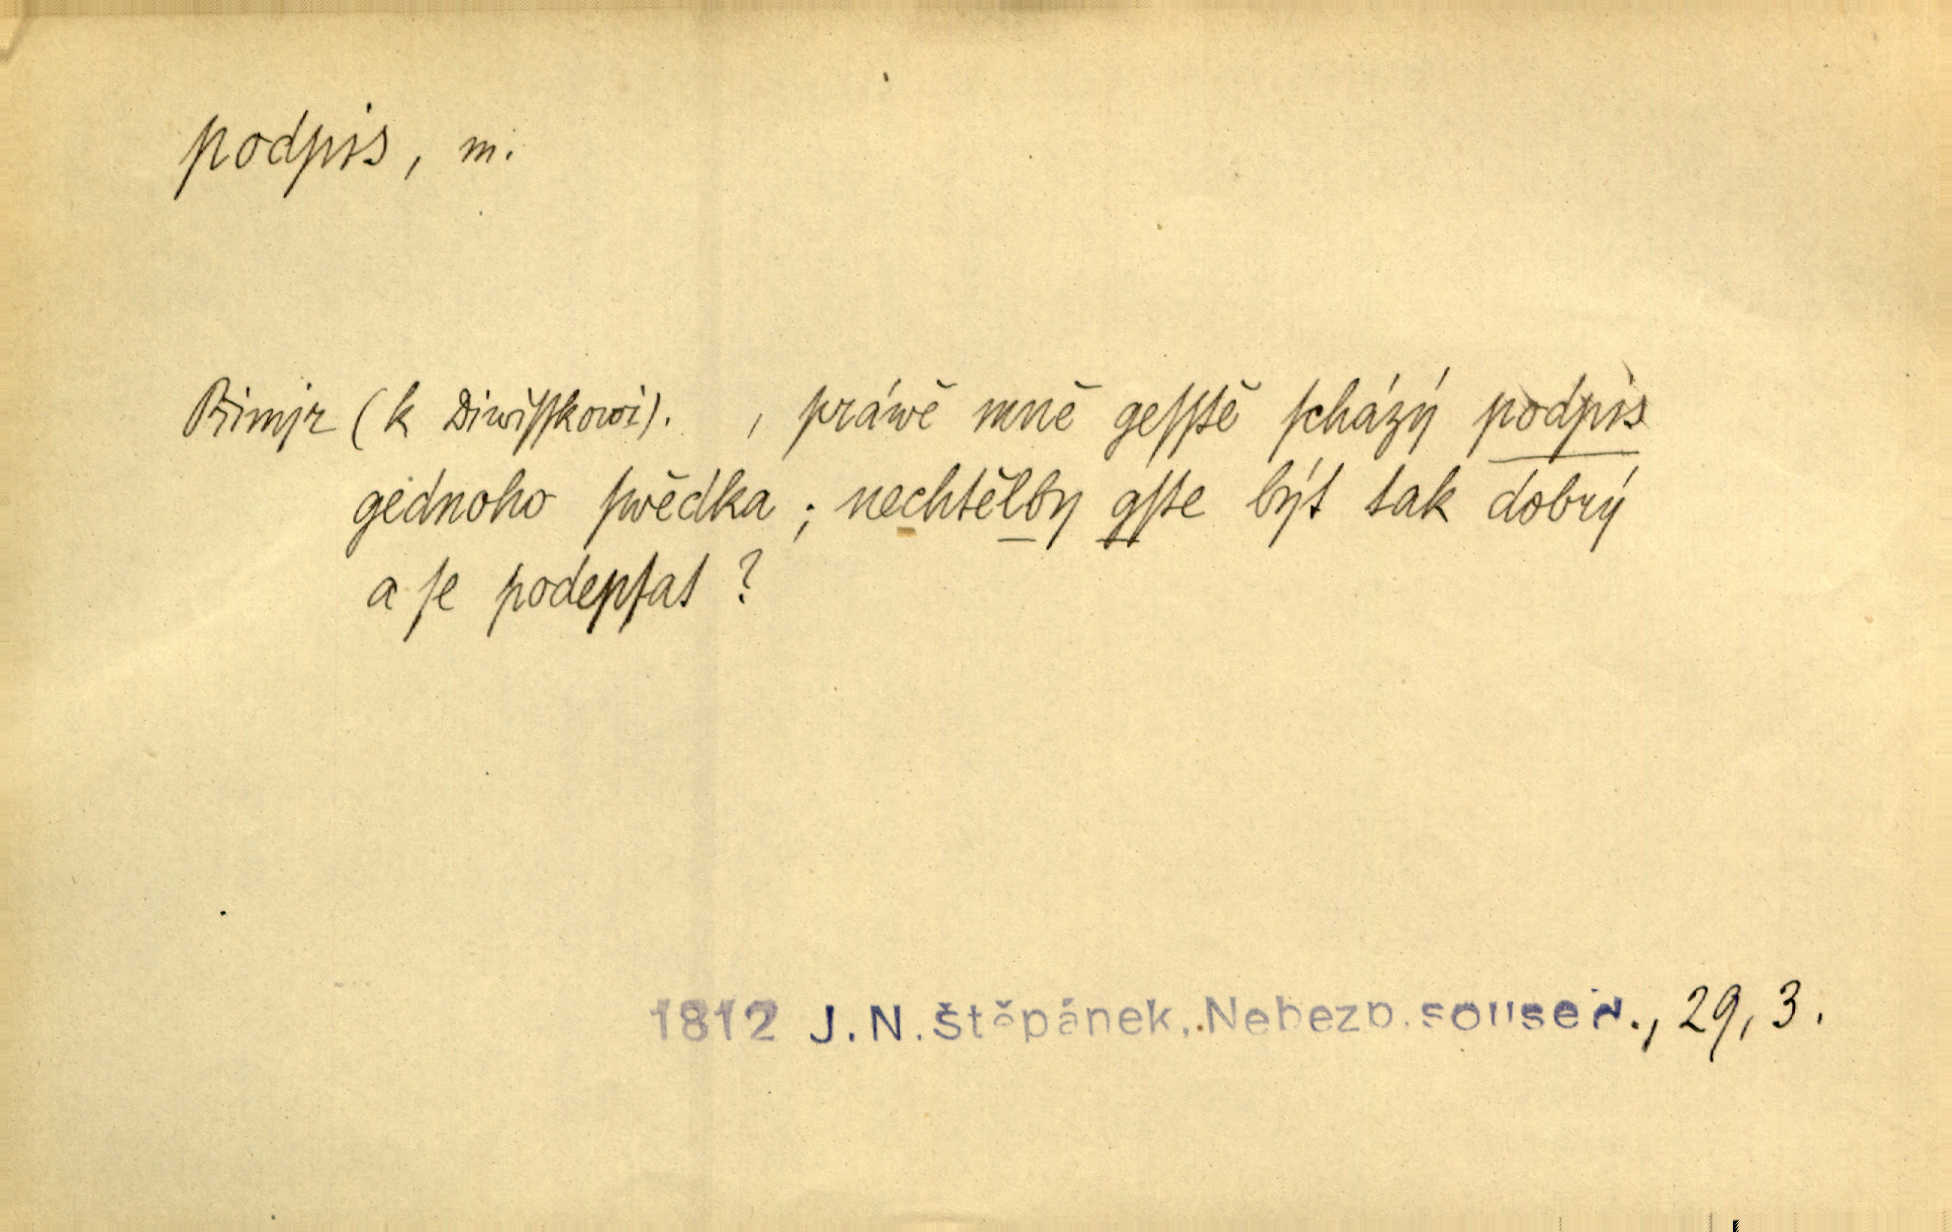 podpis, m.
Rimjr (k Diwiſſkowi). , práwě mně geſſtě ſcházý podpis
gednoho ſwědka ; nechtělby gſte být tak dobrý
a ſe podepſat ?
1812 J.N.Štěpánek,.Nebezp.soused., 29, 3.